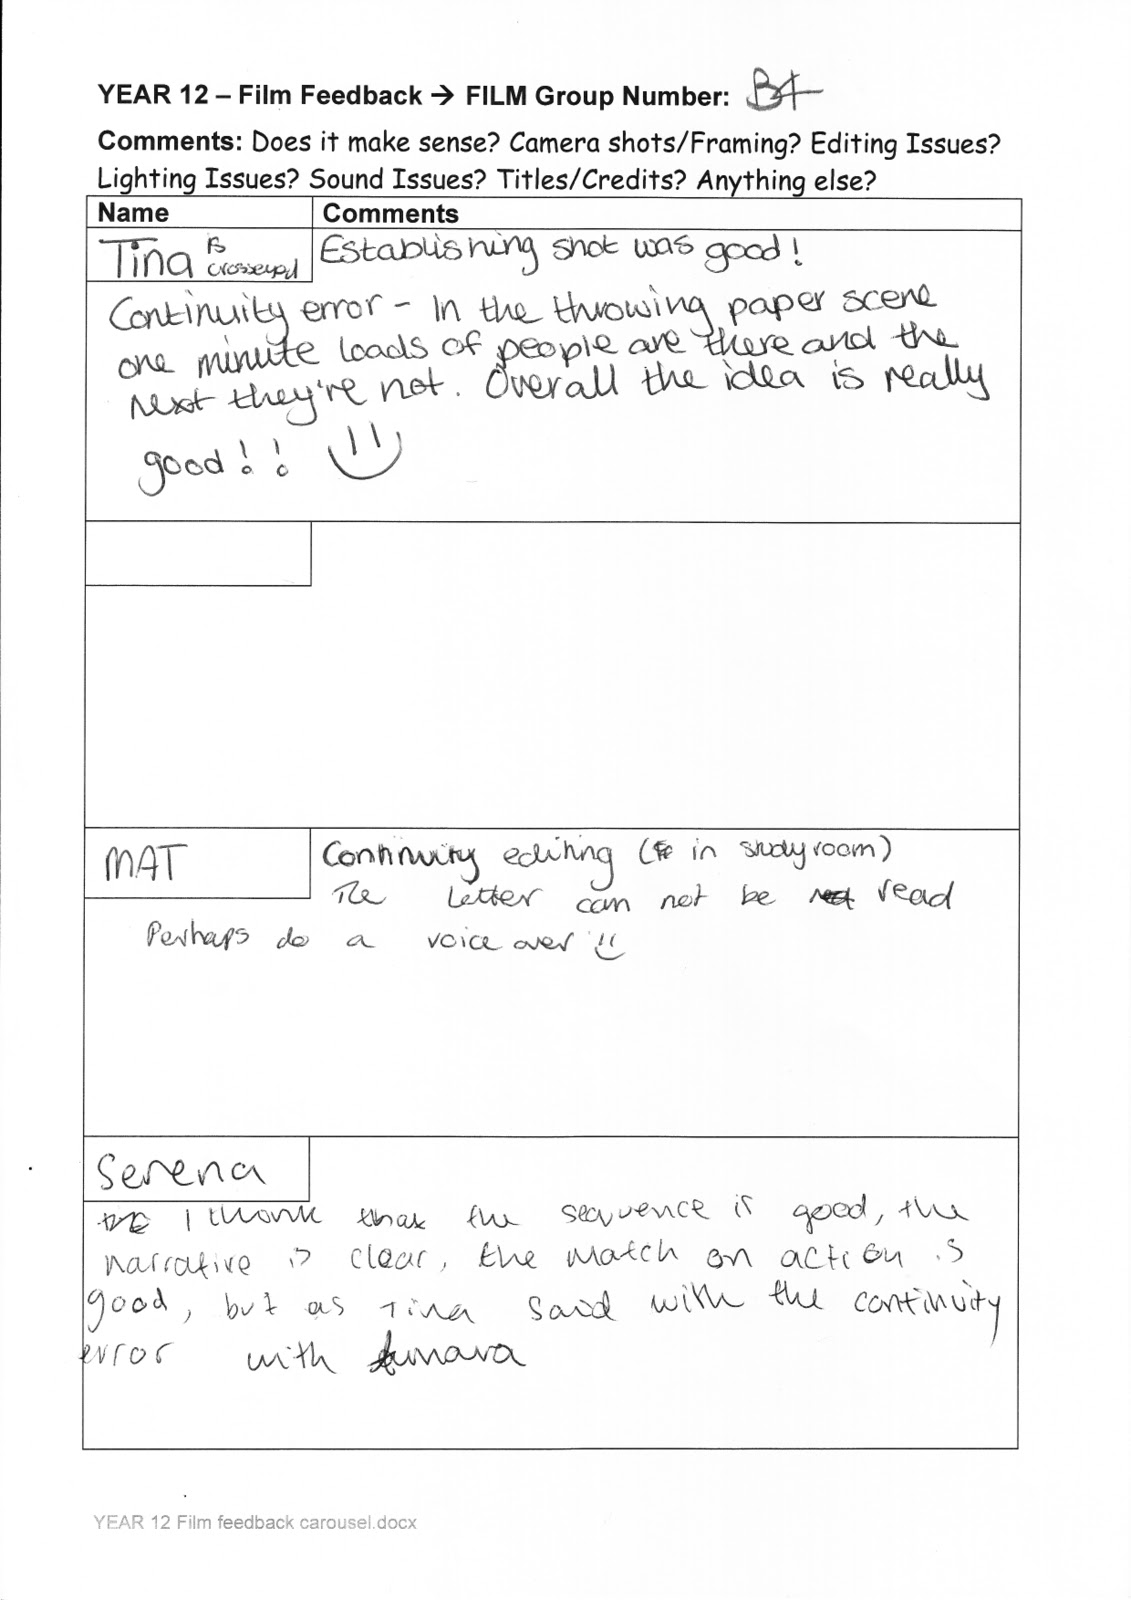 YEAR 12 – Film Feedback → FILM Group Number: B4
Comments: Does it make sense? Camera shots/Framing? Editing Issues?
Lighting Issues? Sound Issues? Titles/Credits? Anything else?
Name Comments
Tina is crosseyed Establishing shot was good!
Continuity error - In the throwing paper scene
one minute loads of people are there and the
next they're not. Overall the idea is really
good!!
MAT Continuity editing (in studyroom)
The letter can not be read
Perhaps do a voice over
Serena
I think that the sequence is good, the
narrative is clear, the match on action is
good, but as Tina said with the continuity
error with
YEAR 12 Film feedback carousel.docx